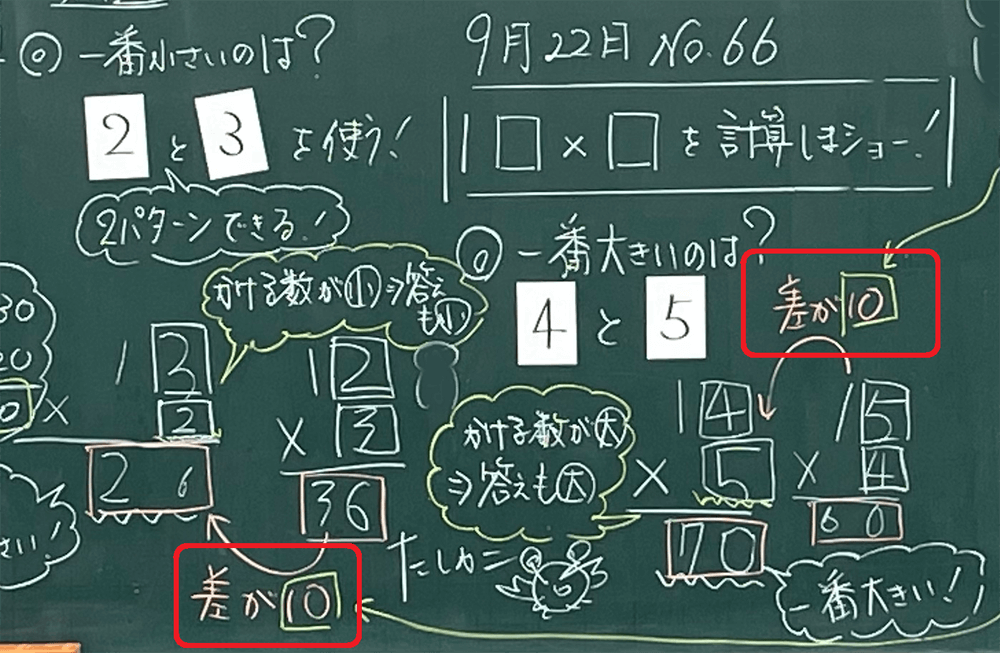 9月22日 No.66
1□×□を計算しまショー！
◎一番大きいのは？
4と5
差が10
14
×5
70
15
×4
60
かける数が大
⇒答えも大
一番大きい！
◎一番小さいのは？
2と3を使う！
2パターンできる！
かける数が小⇒答え
も小
13
×2
26
12
×3
36
差が10
たしカニ
30
20
さい！